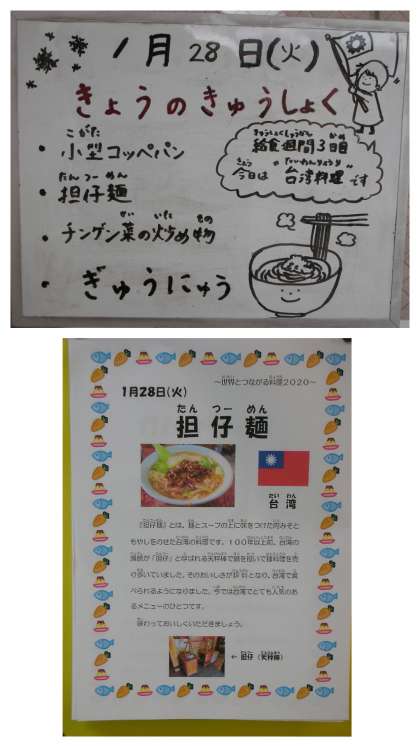 1月28日(火)
きょうのきゅうしょく
こがた
・小型コッペパン
たん つー めん
・担仔麺
さい いた もの
・チンゲン菜の炒め物
・ぎゅうにゅう
きゅうしょくしゅうかん かめ
給食週間3日目
きょう たいわんりょうり
今日は"台湾料理"です
～世界とつながる料理2020～
1月28日(火)
たん つー めん
担仔麺
たい わん
台湾
『担仔麺』とは、麺とスープの上に味をつけた肉みそと
もやしをのせた台湾の料理です。100年以上前、台湾の
漁師が「担仔」と呼ばれる天秤棒で鍋を担いで麺料理を売
り歩いていました。そのおいしさが評判となり、台湾で食
べられるようになりました。今では台湾でとても人気のあ
るメニューのひとつです。
味わっておいしくいただきましょう。
← 担仔（天秤棒）